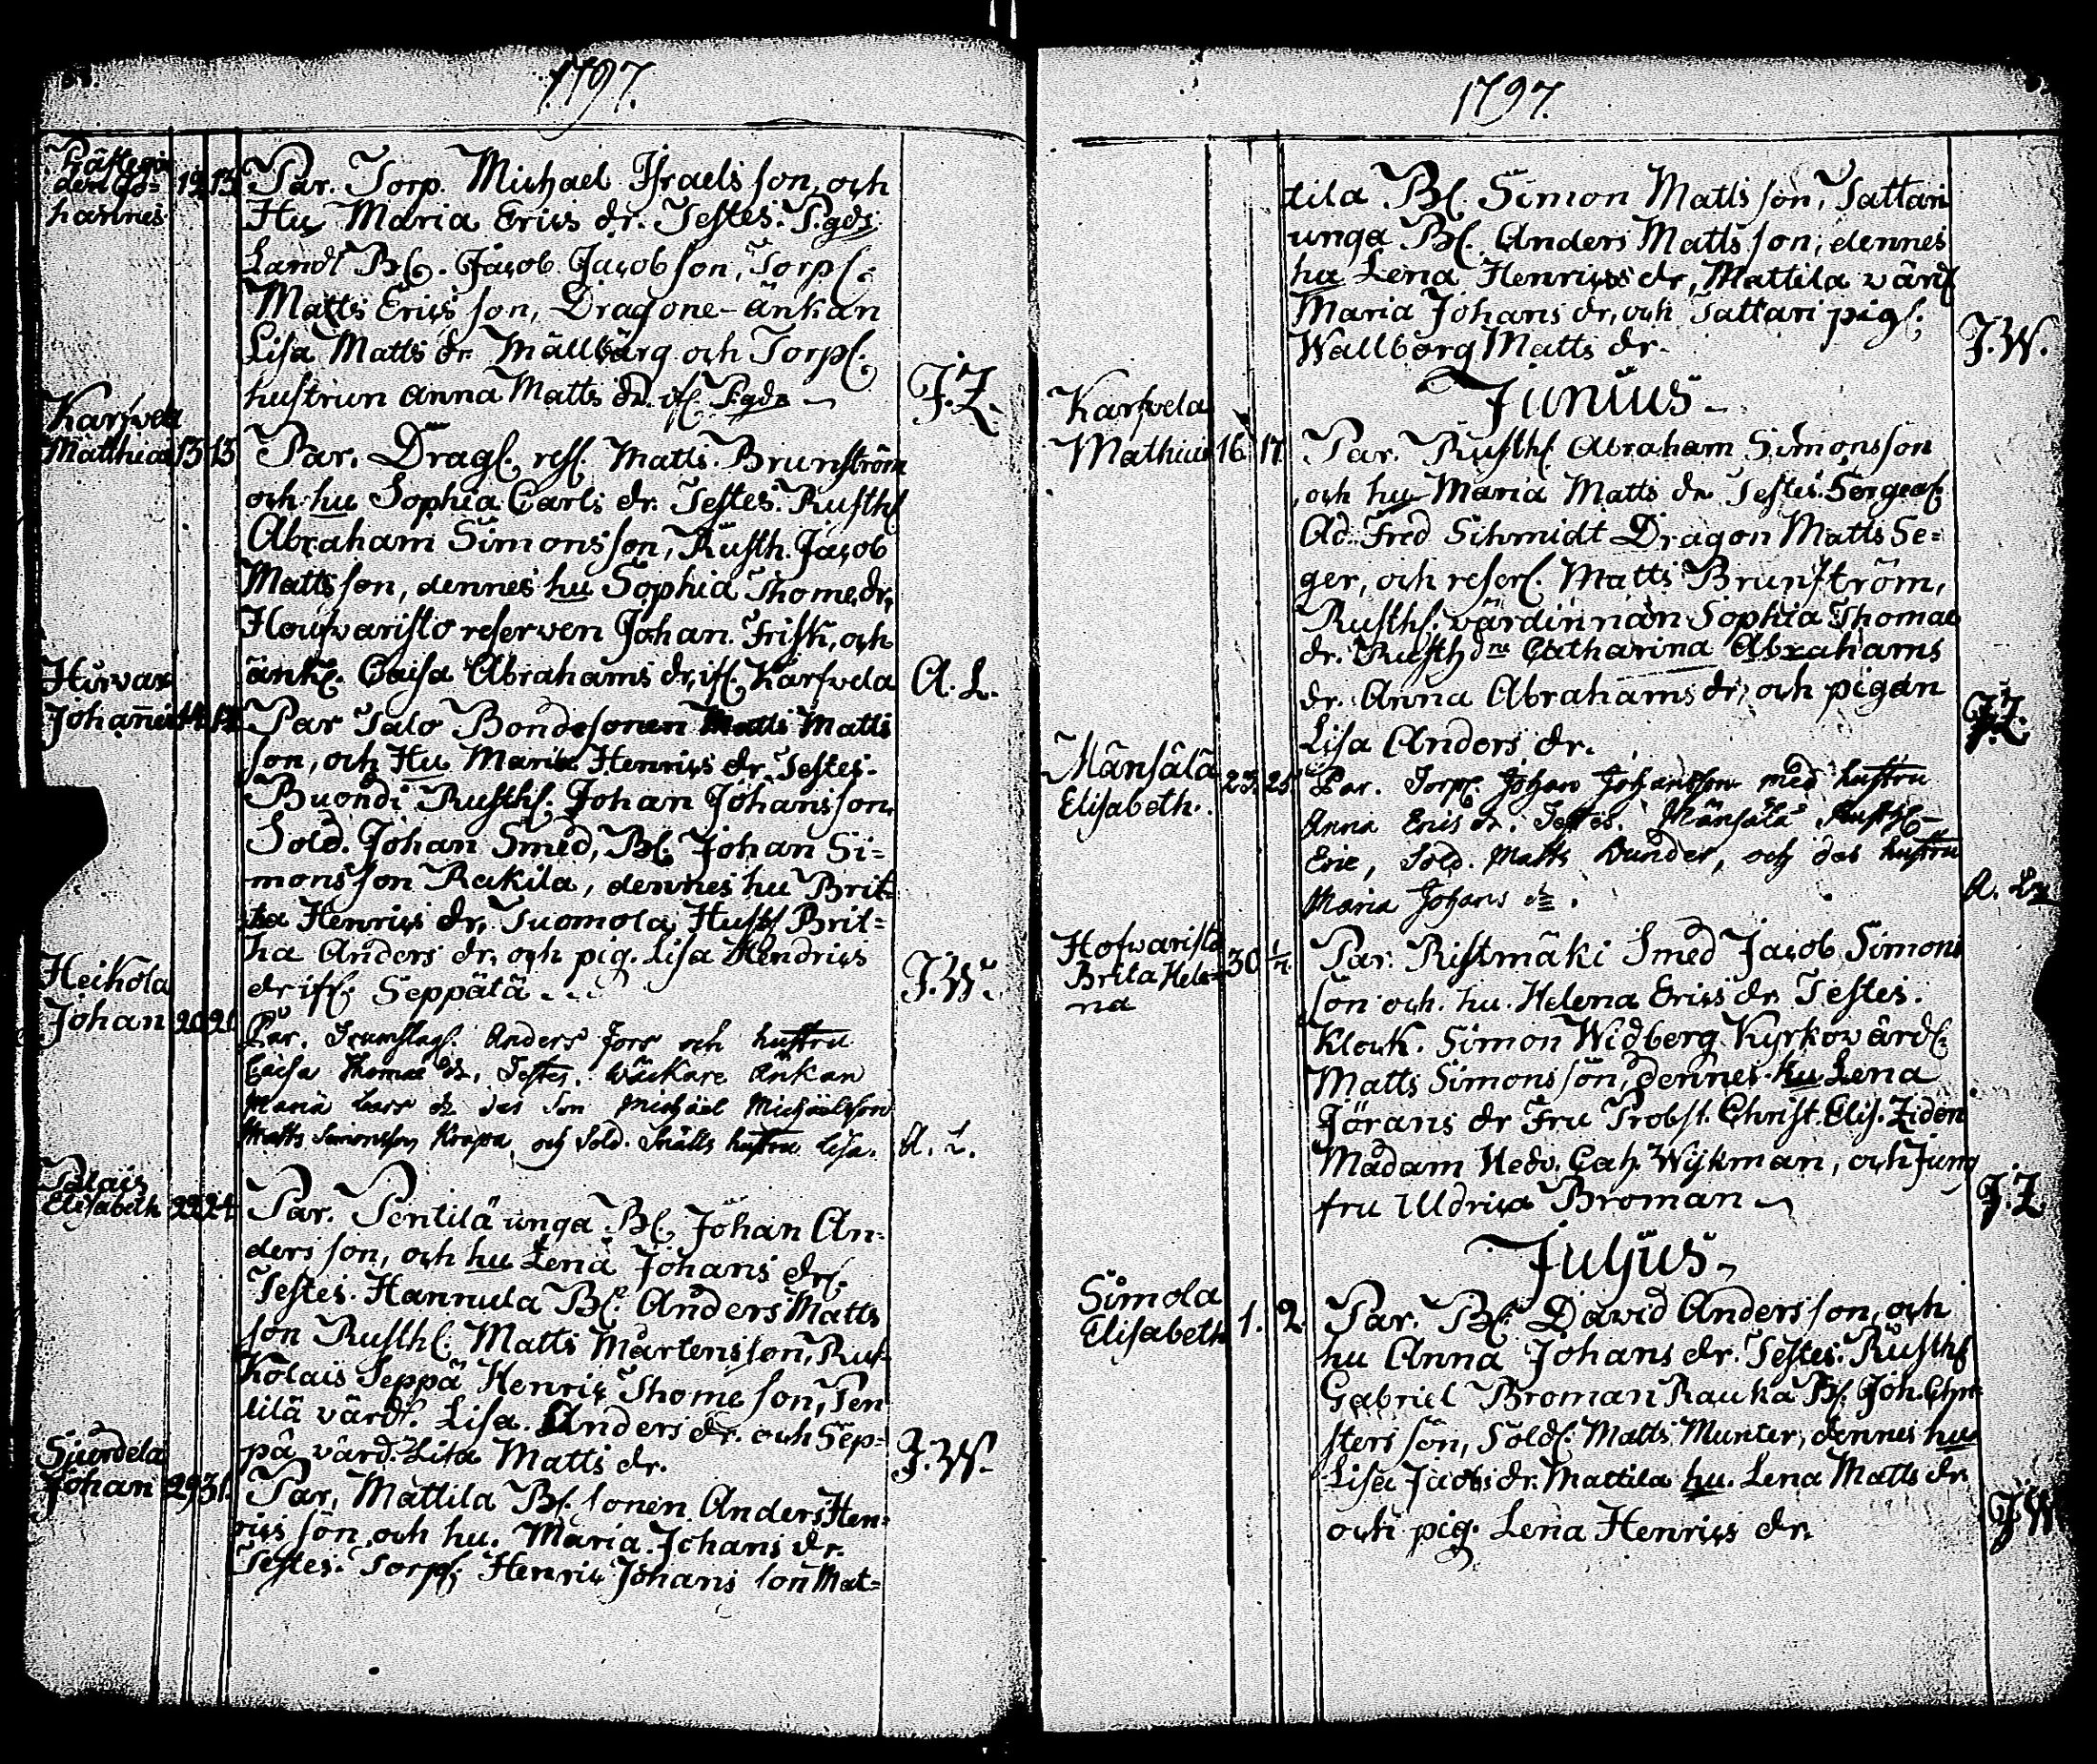 1797.
Par. Torp. Michael Israels son, och
Hu Maria Erics dr. Testes. P.gds
Landb Bf. Jacob Jacob son, Torpf.
Matts Erics son, Dragone-änkan
Lisa Matts dr Mällbärg och Torpf.
hustrun Anna Matts dr. if. P.gds
J.Z.
hannes 12 13
Karfvela
Matthias 13 15
Par. Dragf. resf. Matts Brunström
och hu Sophia Carls dr. Testes. Rusthf
Abraham Simons son, Rusth. Jacob
Matts son, dennes hu Sophia Thome dr,
reserven Johan Frisk, och
änkf. Caisa Abrahams dr, if. Karfvela
A. L.
Hirvas
Johannes
Par Talo Bondesonen Matts
son, och Hu Maria Henrics dr Testes.
Buondi Rusthf. Johan Johans son
Sold. Johan Smed, Bf Johan Si=
mons son Rakila, dennes hu Brit=
ta Henrics dr, Tuomola Husf Brit=
ha Anders dr, och pig. Lisa Hendrics
dr if. Seppätä
J.W.
Heikola
Johan 20 21
Par. Trumslagf. Anders Fors och hustru
Caisa Thomae dr, Testes. Wäckare Änkan
Maria Lars dr des son Michäel Michäelsson
Matts Simonsson Krapa, och Sold. Snälls hustru Lisa.
A. L.
Palais
Elisabeth 22 24
Par. Pentilä unga Bf. Johan An=
ders son, och hu Lena Johans drf.
Testes. Hannula Bf. Anders Matts
son Rusthf. Matts Mårtens son, Rus=
kolais Seppä Henric Thome son, Pen
tilä värdf. Lisa Anders dr. och Sep=
pä värd. Lisa Matts dr.
J.W.
Sjurdela
Johan 29 31.
Par, Mattila Bf. sonen Anders Hen=
rics son, och hu. Maria Johans dr.
Testes. Torpf. Henric Johans son Mat=
1797.
tila Bf. Simon Matts son, Tattari
unga Bf. Anders Matts son, dennes
hu Lena Henrics dr, Mattila värd
Maria Johans dr, och Tattari pigf.
Wallborg Matts dr.
J.W.
Junius
Karfvela
Mathius 16. 17.
Par. Rusthf. Abraham Simons son
och hu Maria Matts dr Testes. Sergeaf.
Ad. Fred Schmidt Dragon Matts Se=
ger, och reserf. Matts Brunström,
Rusthf. värdinnan Sophia Thomae
dr. Rusthdne Catharina Abrahams
dr. Anna Abrahams dr, och pigan
Lisa Anders dr.
J.Z.
Mänsälä
Elisabeth. 23. 25.
Par. Torpf. Johan Johansson med hustru
Anna Erics dr. Testes. Mänsälä Rusthf
Eric, Sold. Matts Dunder, och des hustru
Maria Johans dr.
A. L
Hofvaristo
Brita Hele=
na 30 1/7.
Par. Ristmäki Smed Jacob Simons
son och. hu. Helena Erics dr Testes.
Klock. Simon Widberg Kyrkovärdf.
Matts Simons son, dennes hu Lena
Görans dr Fru Probst. Christ. Elis. Ziden
Madam Hedv. Cath. Wykman, och Jung
fru Uldrica Broman
J.Z
Julius
Simola
Elisabeth 1. 2.
Par. Bf. David Anders son, och
hu Anna Johans dr. Testes. Rusthf
Gabriel Broman Rauka Bf. Joh. Chri=
sters son, Soldf. Matts Munter, dennes hu
Lisa Jacobs dr. Mattila hu. Lena Matts dr
och pig. Lena Henrics dr.
J.W